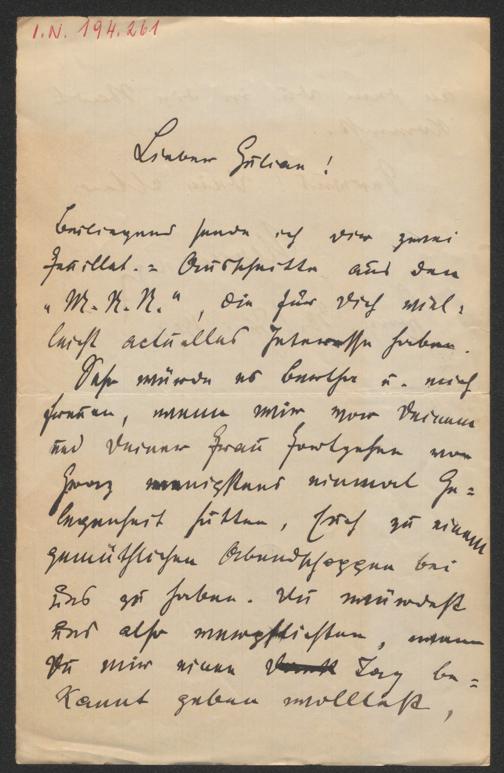 I.N. 194.261
Lieber Julian!
Beiliegend sende ich dir zwei
Feuillet.= Ausschnitte aus den
„M.N.N.", die für dich viel=
leicht actuelles Interesse haben.
Sehr würde es Bertha u. mich
freuen, wenn wir vor Deinem
und Deiner Frau Fortgehen von
Graz wenigstens einmal Ge=
legenheit hätten, Euch zu einem
gemüthlichen Abendschoppen bei
uns zu haben. Du würdest
uns also verpflichten, wenn
Du mir einen Tag be=
kannt geben wolltest,